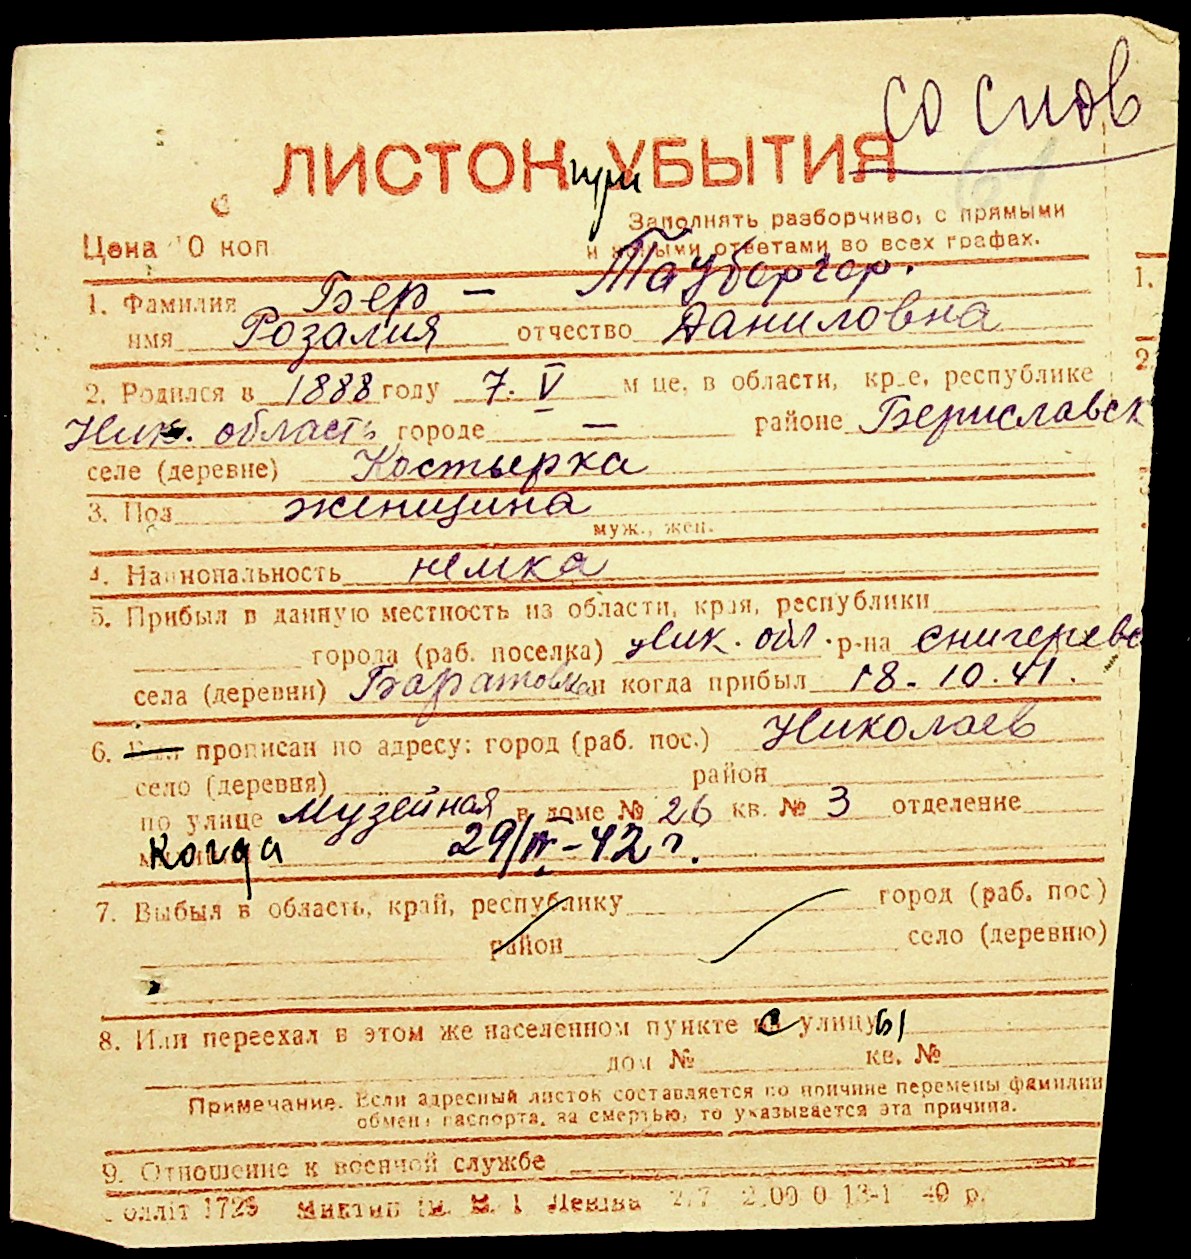 со снов
61
ЛИСТОК при УБЫТИЯ
Заполнять разборчиво, с прямыми
Цена 10 коп
и ясными ответами во всех графах.
1. Фамилия Бер – Таубергер.
имя Розалия отчество Даниловна
2. Родился в 1888 году 7. V м це, в области, крае, республике
Ник. область городе — районе Бериславск
селе (деревне) Костырка
3. Пол женщина
муж., жен.
4. Национальность немка
5. Прибыл в данную местность из области, края, республики
города (раб. поселка) Ник. обл. р-на Снигиревс
села (деревни) Баратовка и когда прибыл 18-10.41.
6. прописан по адресу: город (раб. пос.) Николаев
село (деревня) район
по улице Музейная в доме № 26 кв. № 3 отделение
Когда 29/IV-42 г.
7. Выбыл в область, край, республику город (раб. пос.)
район село (деревню)
8. Или переехал в этом же населенном пункте с улицы
дом № кв. №
Примечание. Если адресный листок составляется по причине перемены фамилии
обмена паспорта, за смертью, то указывается эта причина.
9. Отношение к военной службе
1. 
2